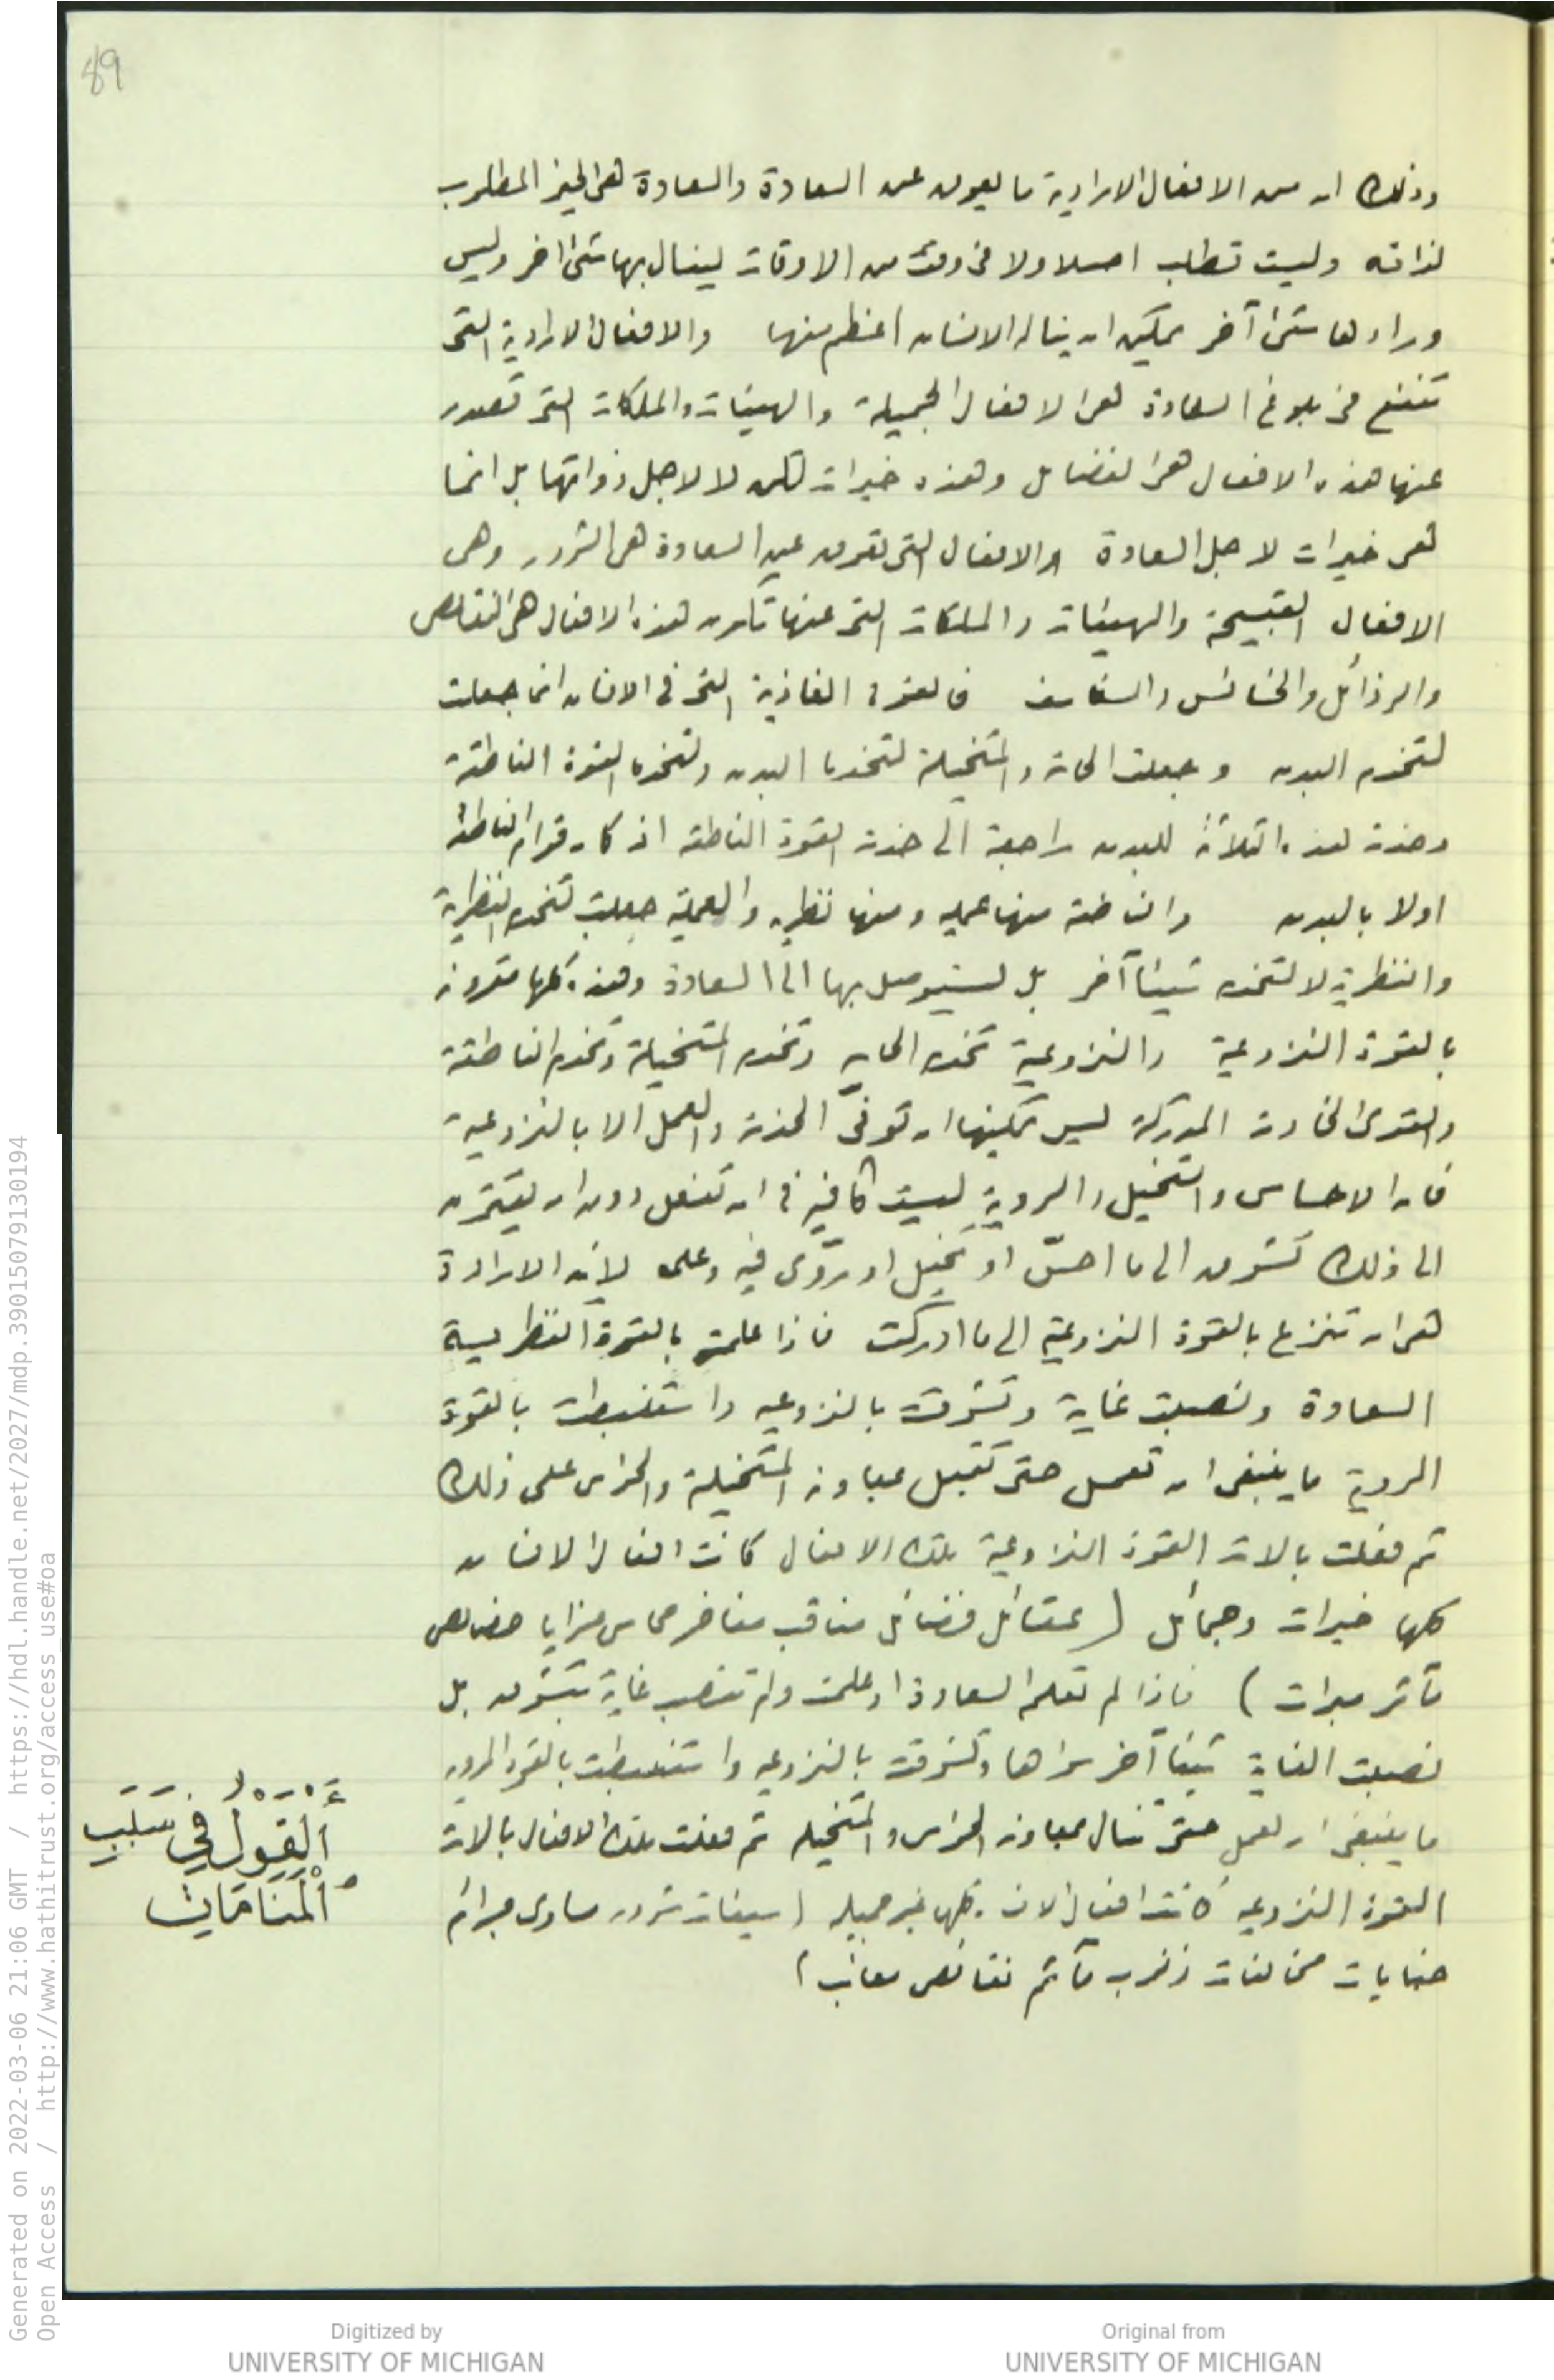 89
وذلك ان من الافعال الارادية ما يعوق عن السعادة والسعادة هى الخير المطلوب
لذاته وليست تطلب اصلا ولا فى وقت من الاوقات لينال بها شئ اخر وليس
وراءها شئ آخر يمكن ان يناله الانسان اعظم منها والافعال الارادية التى
تنفع فى بلوغ السعادة هى الافعال الجميلة والهيئات والملكات التى تصدر
عنها هذه الافعال هى الفضائل وهذه خيرات لكن لا لاجل ذواتها بل انما
هى خيرات لاجل السعادة والافعال التى تعوق عن السعادة هى الشرور وهى
الافعال القبيحة والهيئات والملكات التى عنها تكون هذه الافعال هى النقائص
والرذائل والخسائس فالقوة الغاذية التى فى الانسان انما جعلت
لتخدم البدن وجعلت الحاسة والمتخيلة لتخدما البدن ولتخدما القوة الناطقة
وخدمة هذه الثلاثة للبدن راجعة الى خدمة القوة الناطقة اذ كان قوام الناطقة
اولا بالبدن والناطقة منها عمليه ومنها نظريه والعملية جعلت لتخدم النظرية
والنظرية لا لتخدم شيئا آخر بل ليتوصل بها الى السعادة وهذه كلها مقرونة
بالقوة النزوعية والنزوعية تخدم الحاسه وتخدم المتخيلة وتخدم الناطقة
والقوى الخادمة المدركة ليس يمكنها ان توفى الخدمة والعمل الا بالنزوعية
فان الاحساس والتخيل والروية ليست كافيه فى ان تفعل دون ان يقترن
الى ذلك تشوق الى ما احسّ او تخيل او تروّى فيه وعلم لان الارادة
هى ان تنزع بالقوة النزوعية الى ما ادركت فاذا علمت بالقوة النظرية
السعادة ونصبت غاية وتشوقت بالنزوعيه واستنبطت بالقوة
المروية ما ينبغى ان تعمل حتى تقبل بمعاونة المتخيلة والحواس على ذلك
ثم فعلت بالات القوة النزوعية تلك الافعال كانت افعال الانسان
كلها خيرات وجمائل (عقائل فضائل مناقب مفاخر محاسن مزايا خصائص
مآثر مبرات) فاذا لم تعلم السعادة او علمت ولم تنصب غاية بتشوق بل
نصبت الغاية شيئا آخر سواها وتشوقت بالنزوعيه واستنبطت بالقوة المرويه
ما ينبغى ان تعمل حتى تنال بمعاونة الحواس والمتخيله ثم فعلت تلك الافعال بالات
القوة النزوعيه كانت افعال الانسان كلها غير جميله (سيئات شرور مساوى جرائم
جنايات مخالفات ذنوب مآثم نقائص معائب)
أَلْقَوْلُ فِي سَبَبِ
أَلْمَنَامَاتِ
Generated on 2022-03-06 21:06 GMT / https://hdl.handle.net/2027/mdp.39015079130194
Open Access / http://www.hathitrust.org/access_use#oa
Digitized by
UNIVERSITY OF MICHIGAN
Original from
UNIVERSITY OF MICHIGAN